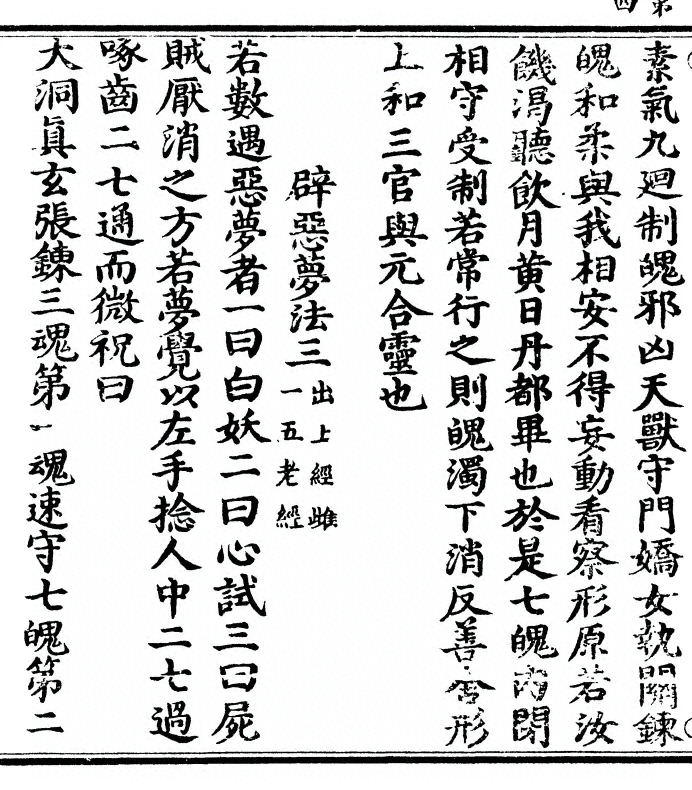 第
四
素氣九廻制魄邪凶天獸守門嬌女執關鍊
魄和柔與我相安不得妄動看察形原若汝
饑渴聽飲月黃日丹都畢也於是七魄內閉
相守受制若常行之則魄濁下消反善合形
上和三官與元合靈也
辟惡夢法三出上經雌
一五老經
若數遇惡夢者一曰白妖二曰心試三曰屍
賊厭消之方若夢覺以左手捻人中二七過
啄齒二七通而微祝曰
大洞眞玄張鍊三魂第一魂速守七魄第二